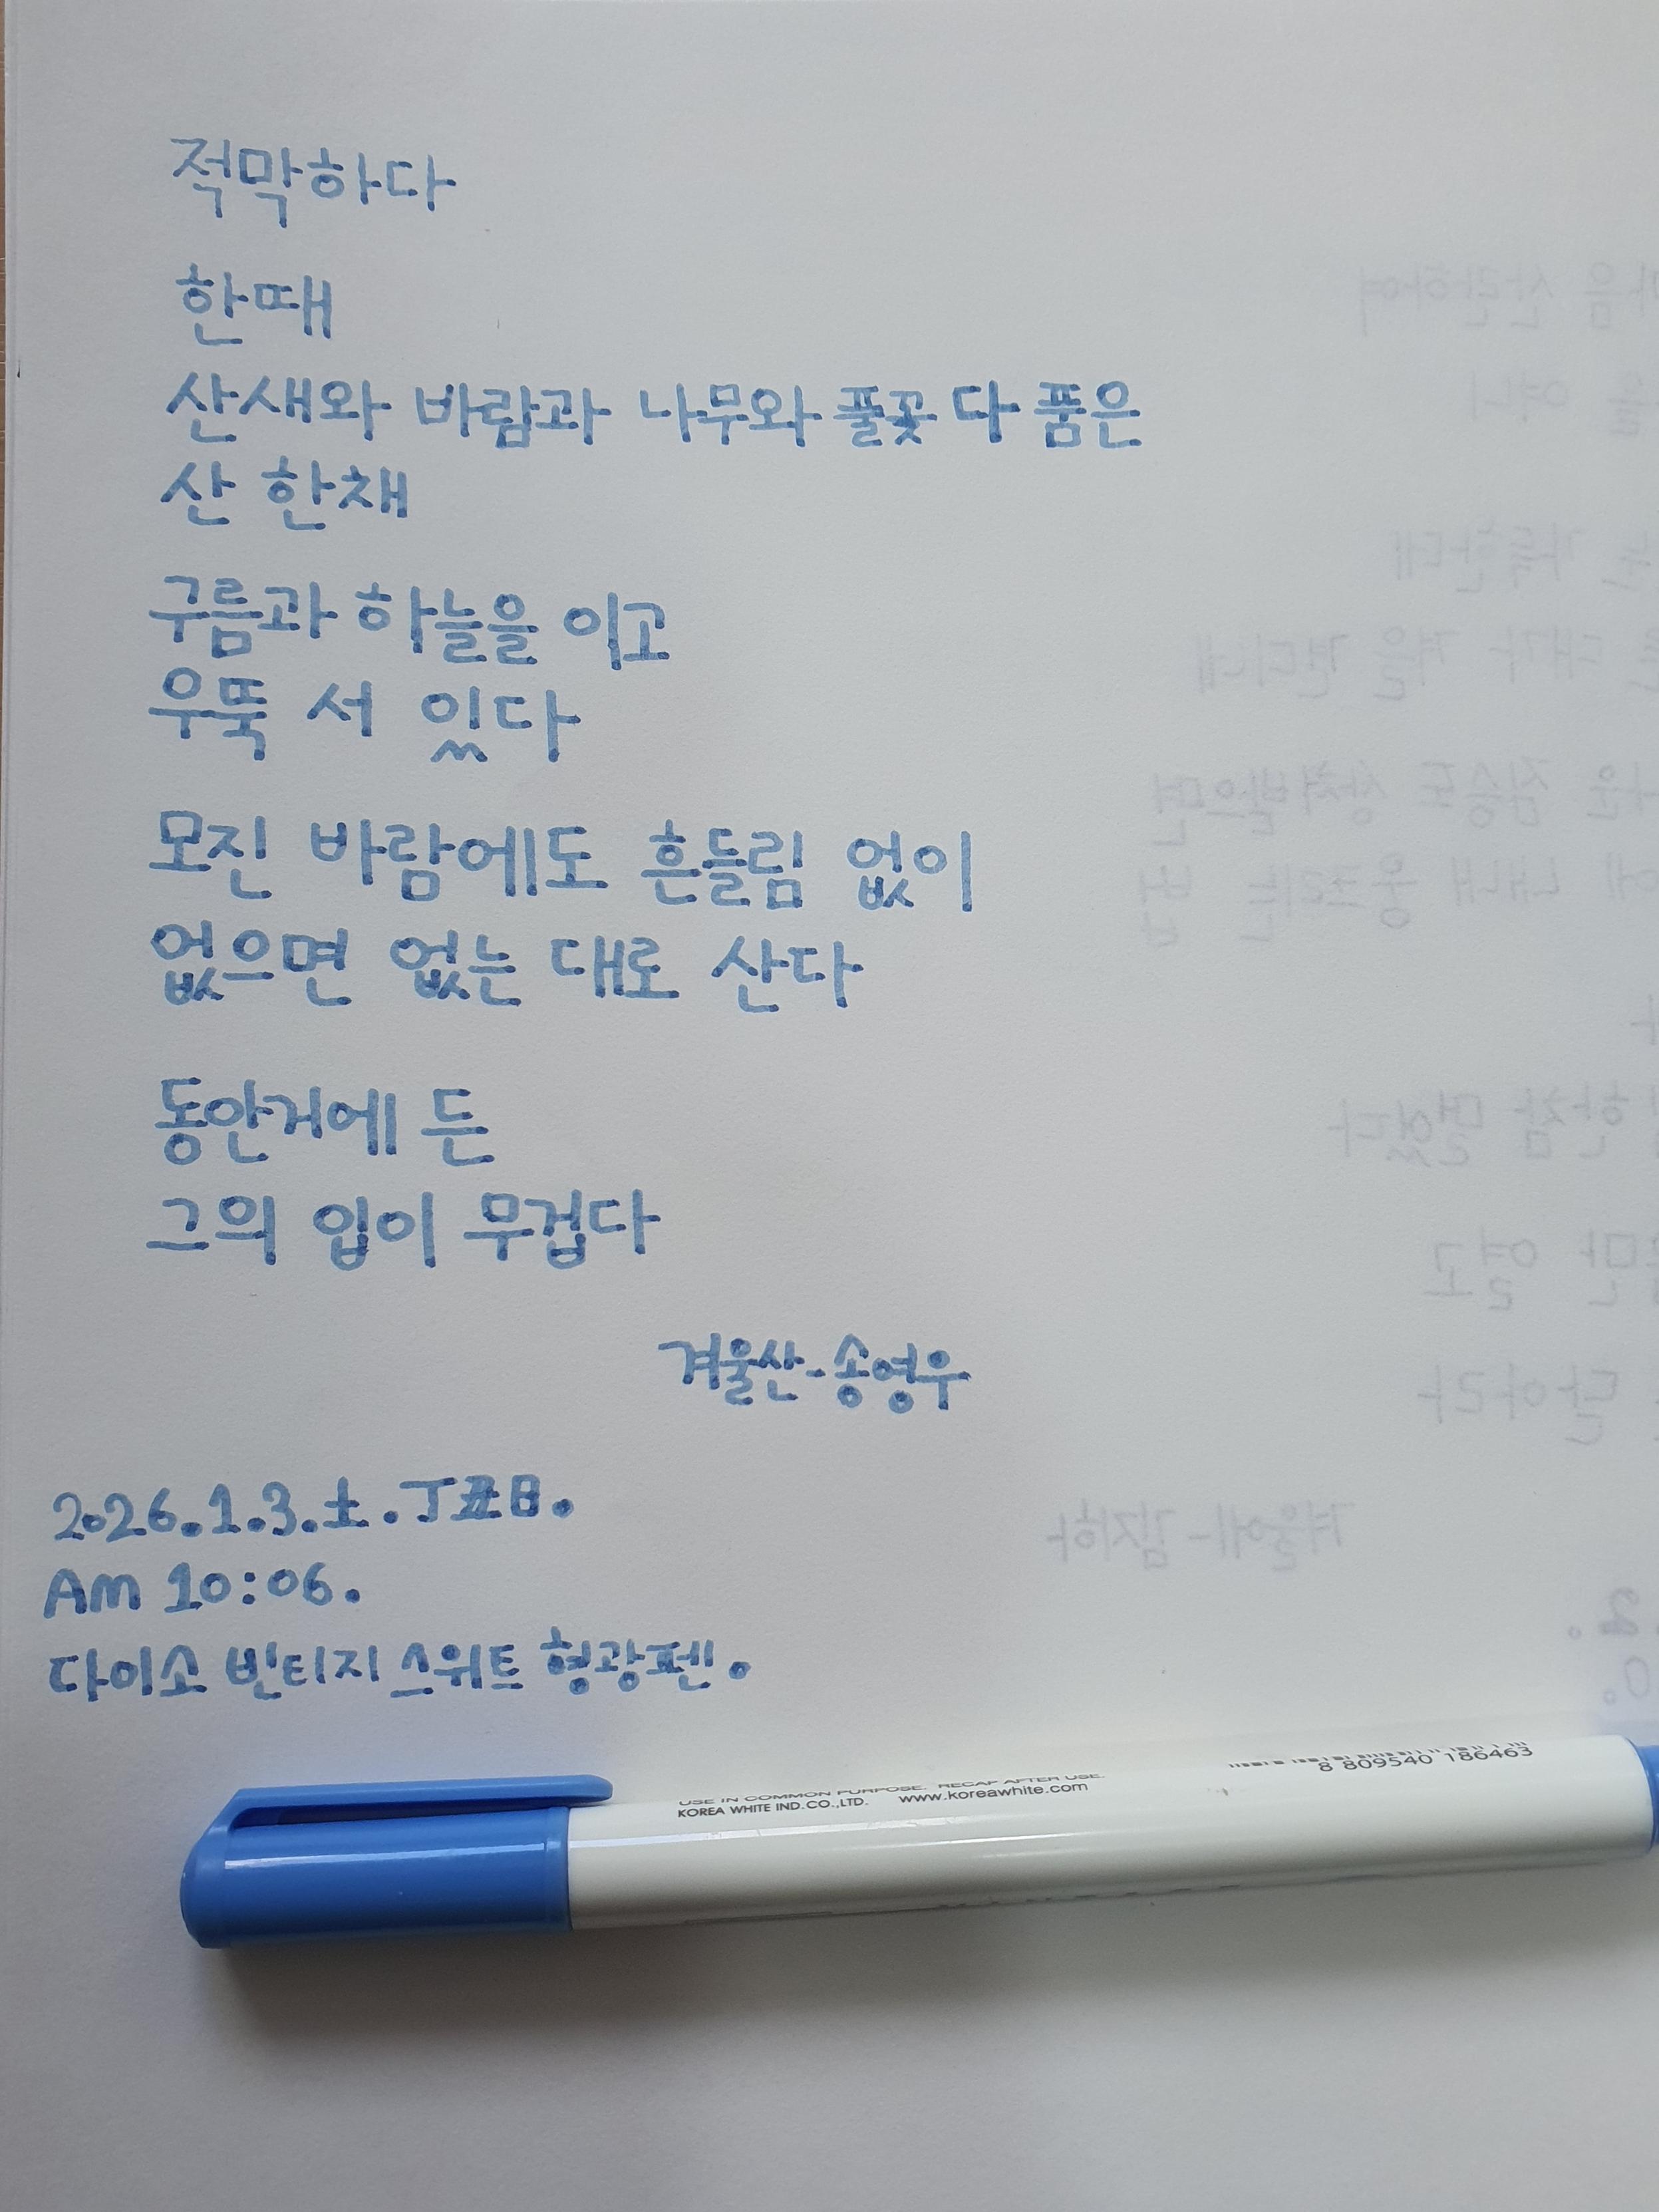 적막하다
한때
산새와 바람과 나무와 풀꽃 다 품은
산 한채
구름과 하늘을 이고
우뚝 서 있다
모진 바람에도 흔들림 없이
없으면 없는 대로 산다
동안거에 든
그의 입이 무겁다
겨울산-송영우
2026.1.3.土.丁丑日.
Am 10:06.
다이소 빈티지 스위트 형광펜.
USE IN COMMON PURPOSE. RECAP AFTER USE.
KOREA WHITE IND.CO.,LTD. www.koreawhite.com
8 809540 186463
겨울에-김지하